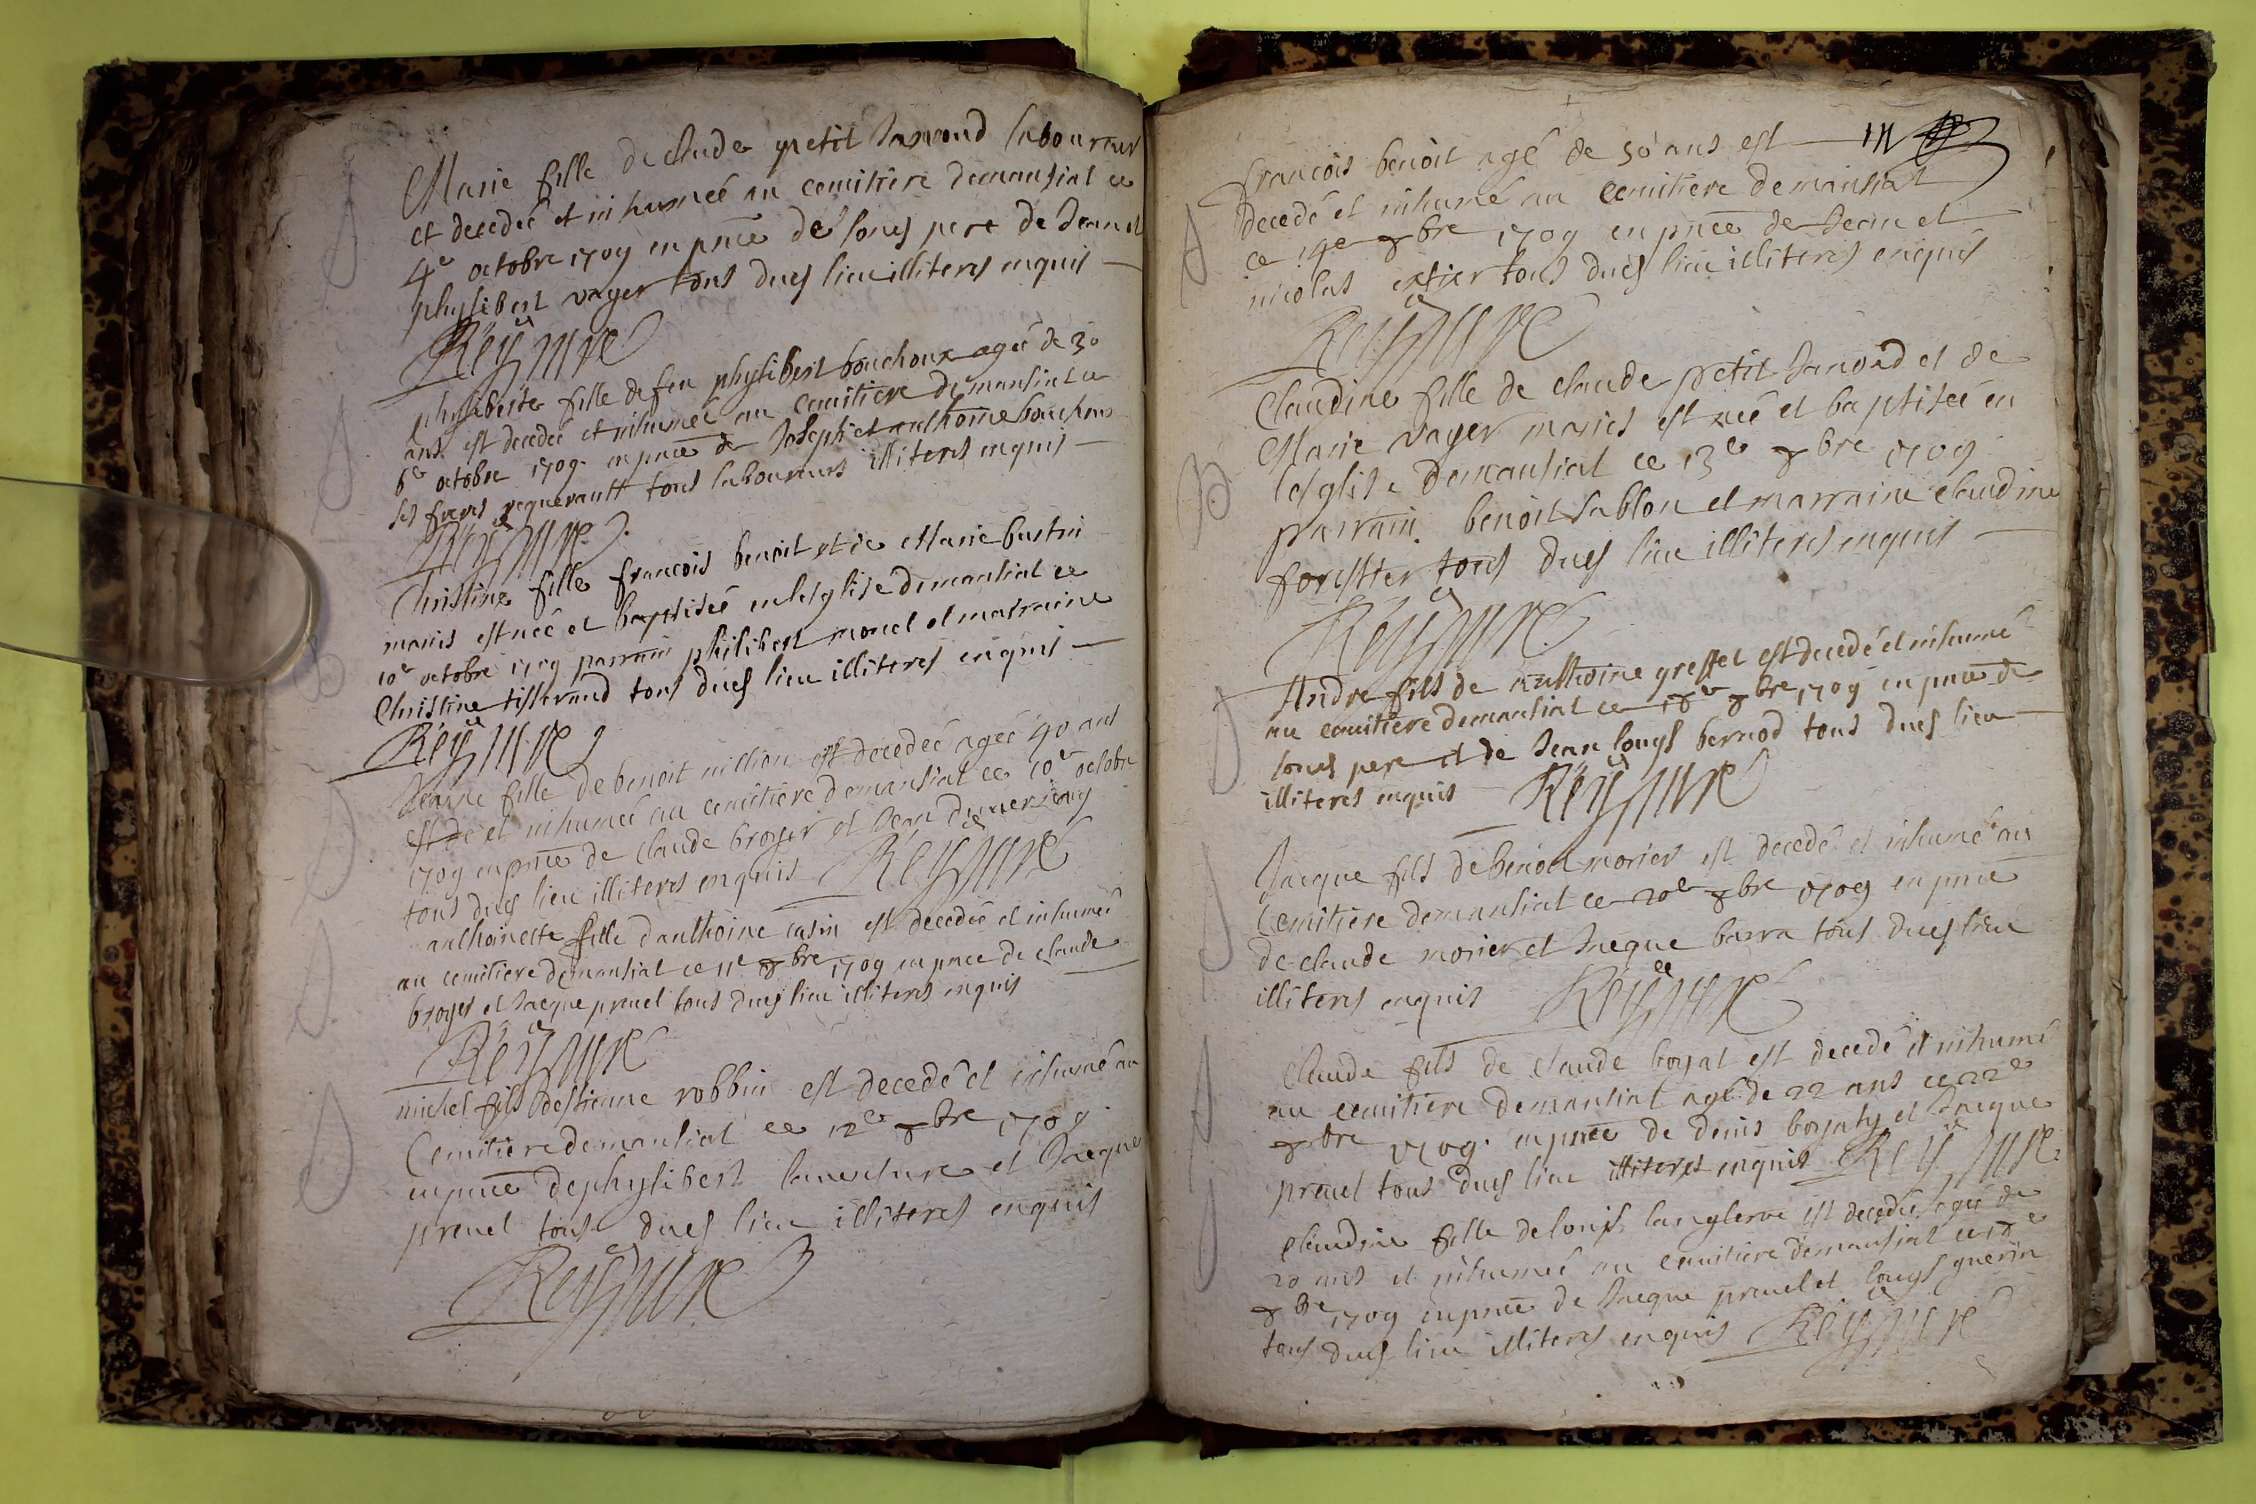 Marie fille de claude petit Janond laboureur
et decedeé et inhumeé au cemitiere demansiat ce
4e octobre 1709 en pnce de sons pere de Jean et
phylibert vayer tous dues lieu illiteres enquis
Rey cure
phyliberte fille de feu phylibert bouchoux ageé de 30
ans est decedeé et inhumeé au cemitiere demansiat ce
6e octobre 1709 en pnce de Joseph et anthoine bouchoux
ses freres requerantt tous laboureurs illiteres enquis
Rey cure
Christine fille francois benoit et de Marie bastin
mariés est neé et baptiseé en leglise demansiat ce
10e octobre 1709 parrain philibert morel et marraine
Christine tisserand tous dues lieu illiteres enquis
Rey cure
Jeanne fille de benoit million est decedeé ageé 40 ans
est de et inhumeé au cemitiere demansiat ce 10e octobre
1709 en pnce de claude broyer et Jean
tous dues lieu illiteres enquis Rey cure
anthoinette fille danthoine casin est decedeé et inhumeé
au cemitiere demansiat ce 11e 8bre 1709 en pnce de claude
broyer et Jacque preuel tous dues lieu illiteres enquis
Rey cure
michel fils destienne robbin est decedé et inhumé au
Cemitiere demansiat ce 12e 8bre 1709
en pnce de phylibert lauesture et Jacque
preuel tous dues lieu illiteres enquis
Rey cure
francois benoit agé de 50 ans est
decedé et inhumé au cemitiere demansiat
ce 14e 8bre 1709 en pnce de Jean et
nicolas tous dues lieu illiteres enquis
Rey cure
Claudine fille de claude petit Janond et de
Marie vayer mariés est neé et baptiseé en
leglise demansiat ce 13e 8bre 1709
parrain benoit sablon et marraine claudine
forestier tous dues lieu illiteres enquis
Rey cure
Andre fils de anthoine greffet est decedé et inhumé
au cemitiere demansiat ce 18e 8bre 1709 en pnce de
sons pere et de Jean louys bernod tous dues lieu
illiteres enquis Rey cure
Jacque fils de benoit morier est decedé et inhumé au
Cemitiere demansiat ce 20e 8bre 1709 en pnce
de claude morier et Jacque barra tous dues lieu
illiteres enquis Rey cure
Claude fils de claude boyat est decedé et inhumé
au cemitiere demansiat agé de 22 ans ce 22e
8bre 1709 en pnce de denis boyat et Jacque
preuel tous dues lieu illiteres enquis Rey cure
Claudine fille de louis langleroi est decedeé ageé de
20 ans et inhumeé au cemitiere demansiat ce
8bre 1709 en pnce de Jacque preuel et louys guerin
tous dues lieu illiteres enquis Rey cure